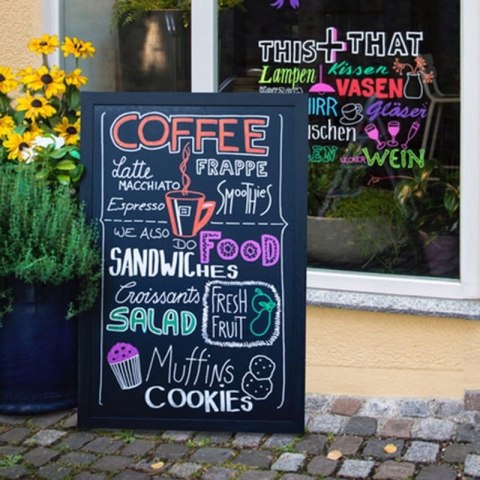 THIS + THAT
Lampen Kissen
VASEN
Gläser
WEIN
COFFEE
Latte MACCHIATO FRAPPE
Espresso SMOOTHIES
WE ALSO DO FOOD
SANDWICHES
Croissants
SALAD
FRESH FRUIT
Muffins
COOKIES